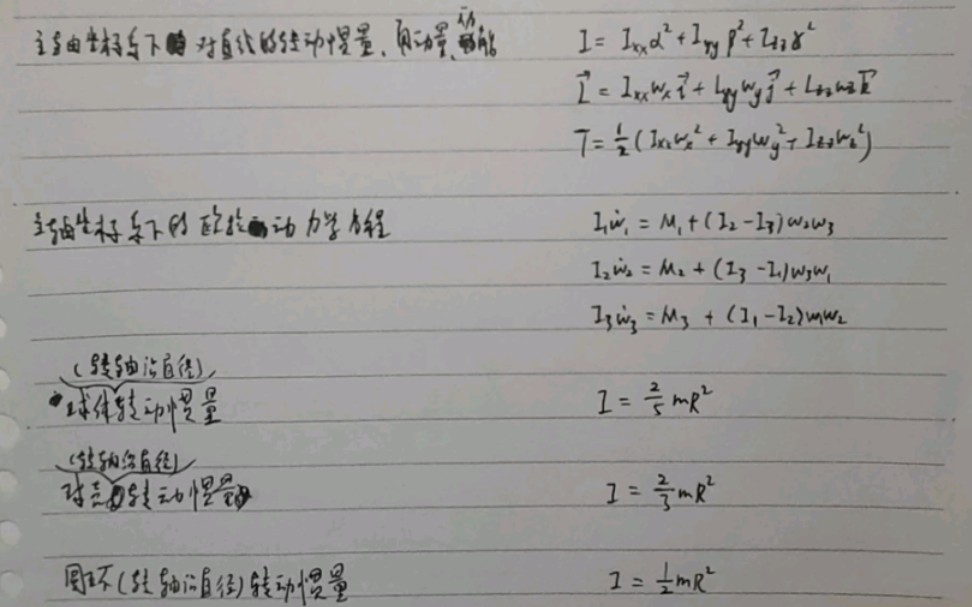 主轴坐标系下对直线的转动惯量、角动量、动能 I = Iₓₓα² + I_yyβ² + I_zzγ²
L⃗ = Iₓₓωₓi⃗ + I_yyω_yj⃗ + I_zzω_zk⃗
T = ½(Iₓₓωₓ² + I_yyω_y² + I_zzω_z²)
主轴坐标系下的欧拉动力学方程 I₁ω̇₁ = M₁ + (I₂ - I₃)ω₂ω₃
I₂ω̇₂ = M₂ + (I₃ - I₁)ω₃ω₁
I₃ω̇₃ = M₃ + (I₁ - I₂)ω₁ω₂
(转轴沿直径)
球体转动惯量 I = ⅖mR²
(转轴沿直径)
球壳转动惯量 I = ⅔mR²
圆环(转轴沿直径)转动惯量 I = ½mR²